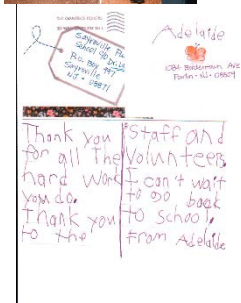 Sayreville Pu
School
P.O. Box 997
Sayreville
NJ. 08871
Adelaide
Parlin - NJ - 08859
Thank you
for all The
hard work
you do.
Thank you
to the
Staff and
Volunteers.
I can't wait
to go back
to school.
From Adelaide